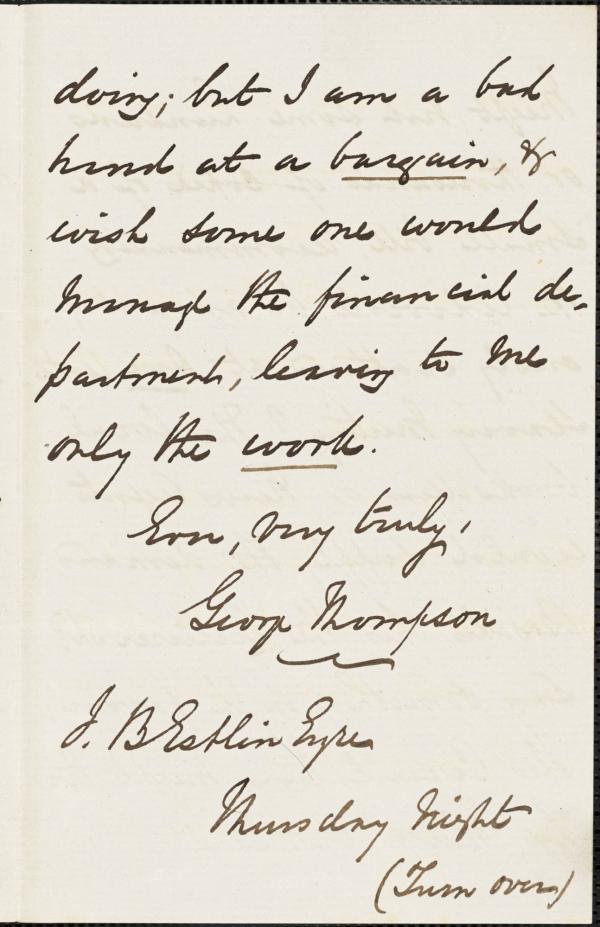 doing; but I am a bad
hand at a bargain, &
wish some one would
manage the financial de-
partment, leaving to me
only the work.
Ever, very truly,
George Thompson
J. B Estlin Esqre
Thursday Night
(Turn over)